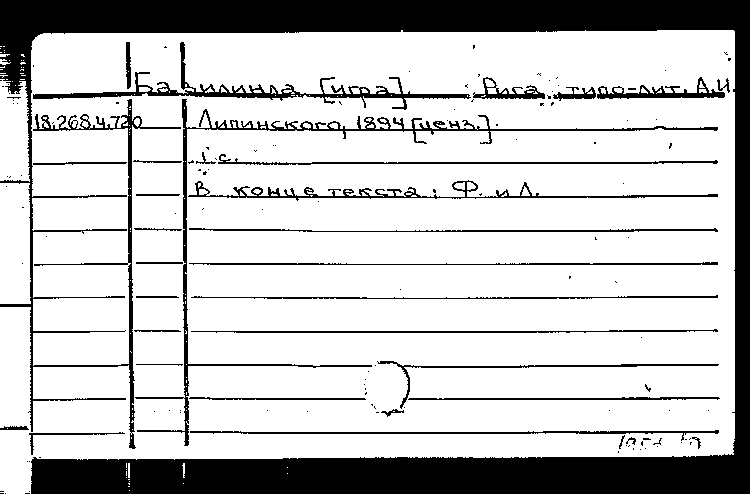 Базилинда [игра]. Рига, типо-лит. А.И.
18.268.4.720 Липинского, 1894 [ценз.].
1 с.
В конце текста: Ф. и Л.